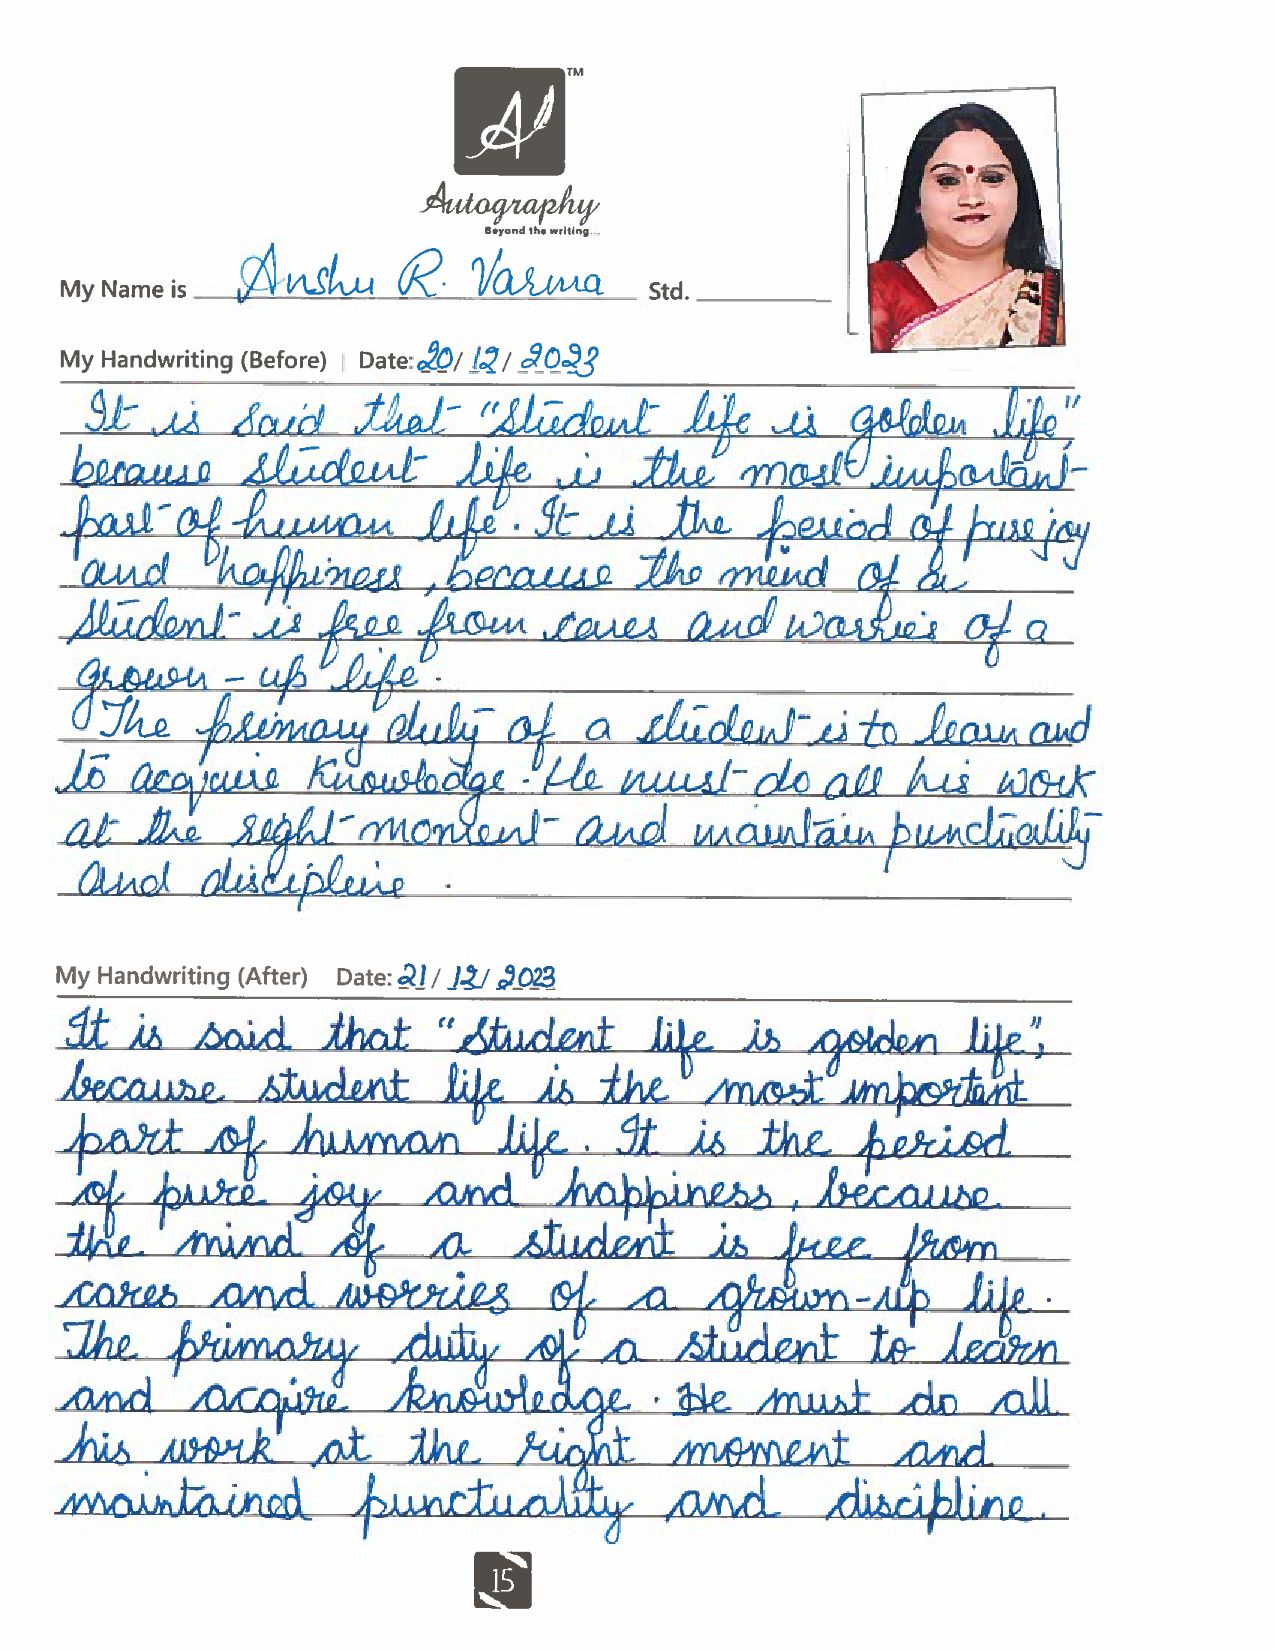 TM
Autography
Beyond the writing...
My Name is Anshu R. Varma Std.
My Handwriting (Before) | Date: 20/ 12/ 2023
It is said that "student life is golden life",
because student life is the most important
part of human life. It is the period of pure joy
and happiness, because the mind of a
student is free from cares and worries of a
grown-up life.
The primary duty of a student is to learn and
to acquire knowledge. He must do all his work
at the right moment and maintain punctuality
and discipline.
My Handwriting (After) Date: 21/ 12/ 2023
It is said that "student life is golden life",
because student life is the most important
part of human life. It is the period
of pure joy and happiness, because
the mind of a student is free from
cares and worries of a grown-up life.
The primary duty of a student to learn
and acquire knowledge. He must do all
his work at the right moment and
maintained punctuality and discipline.
15